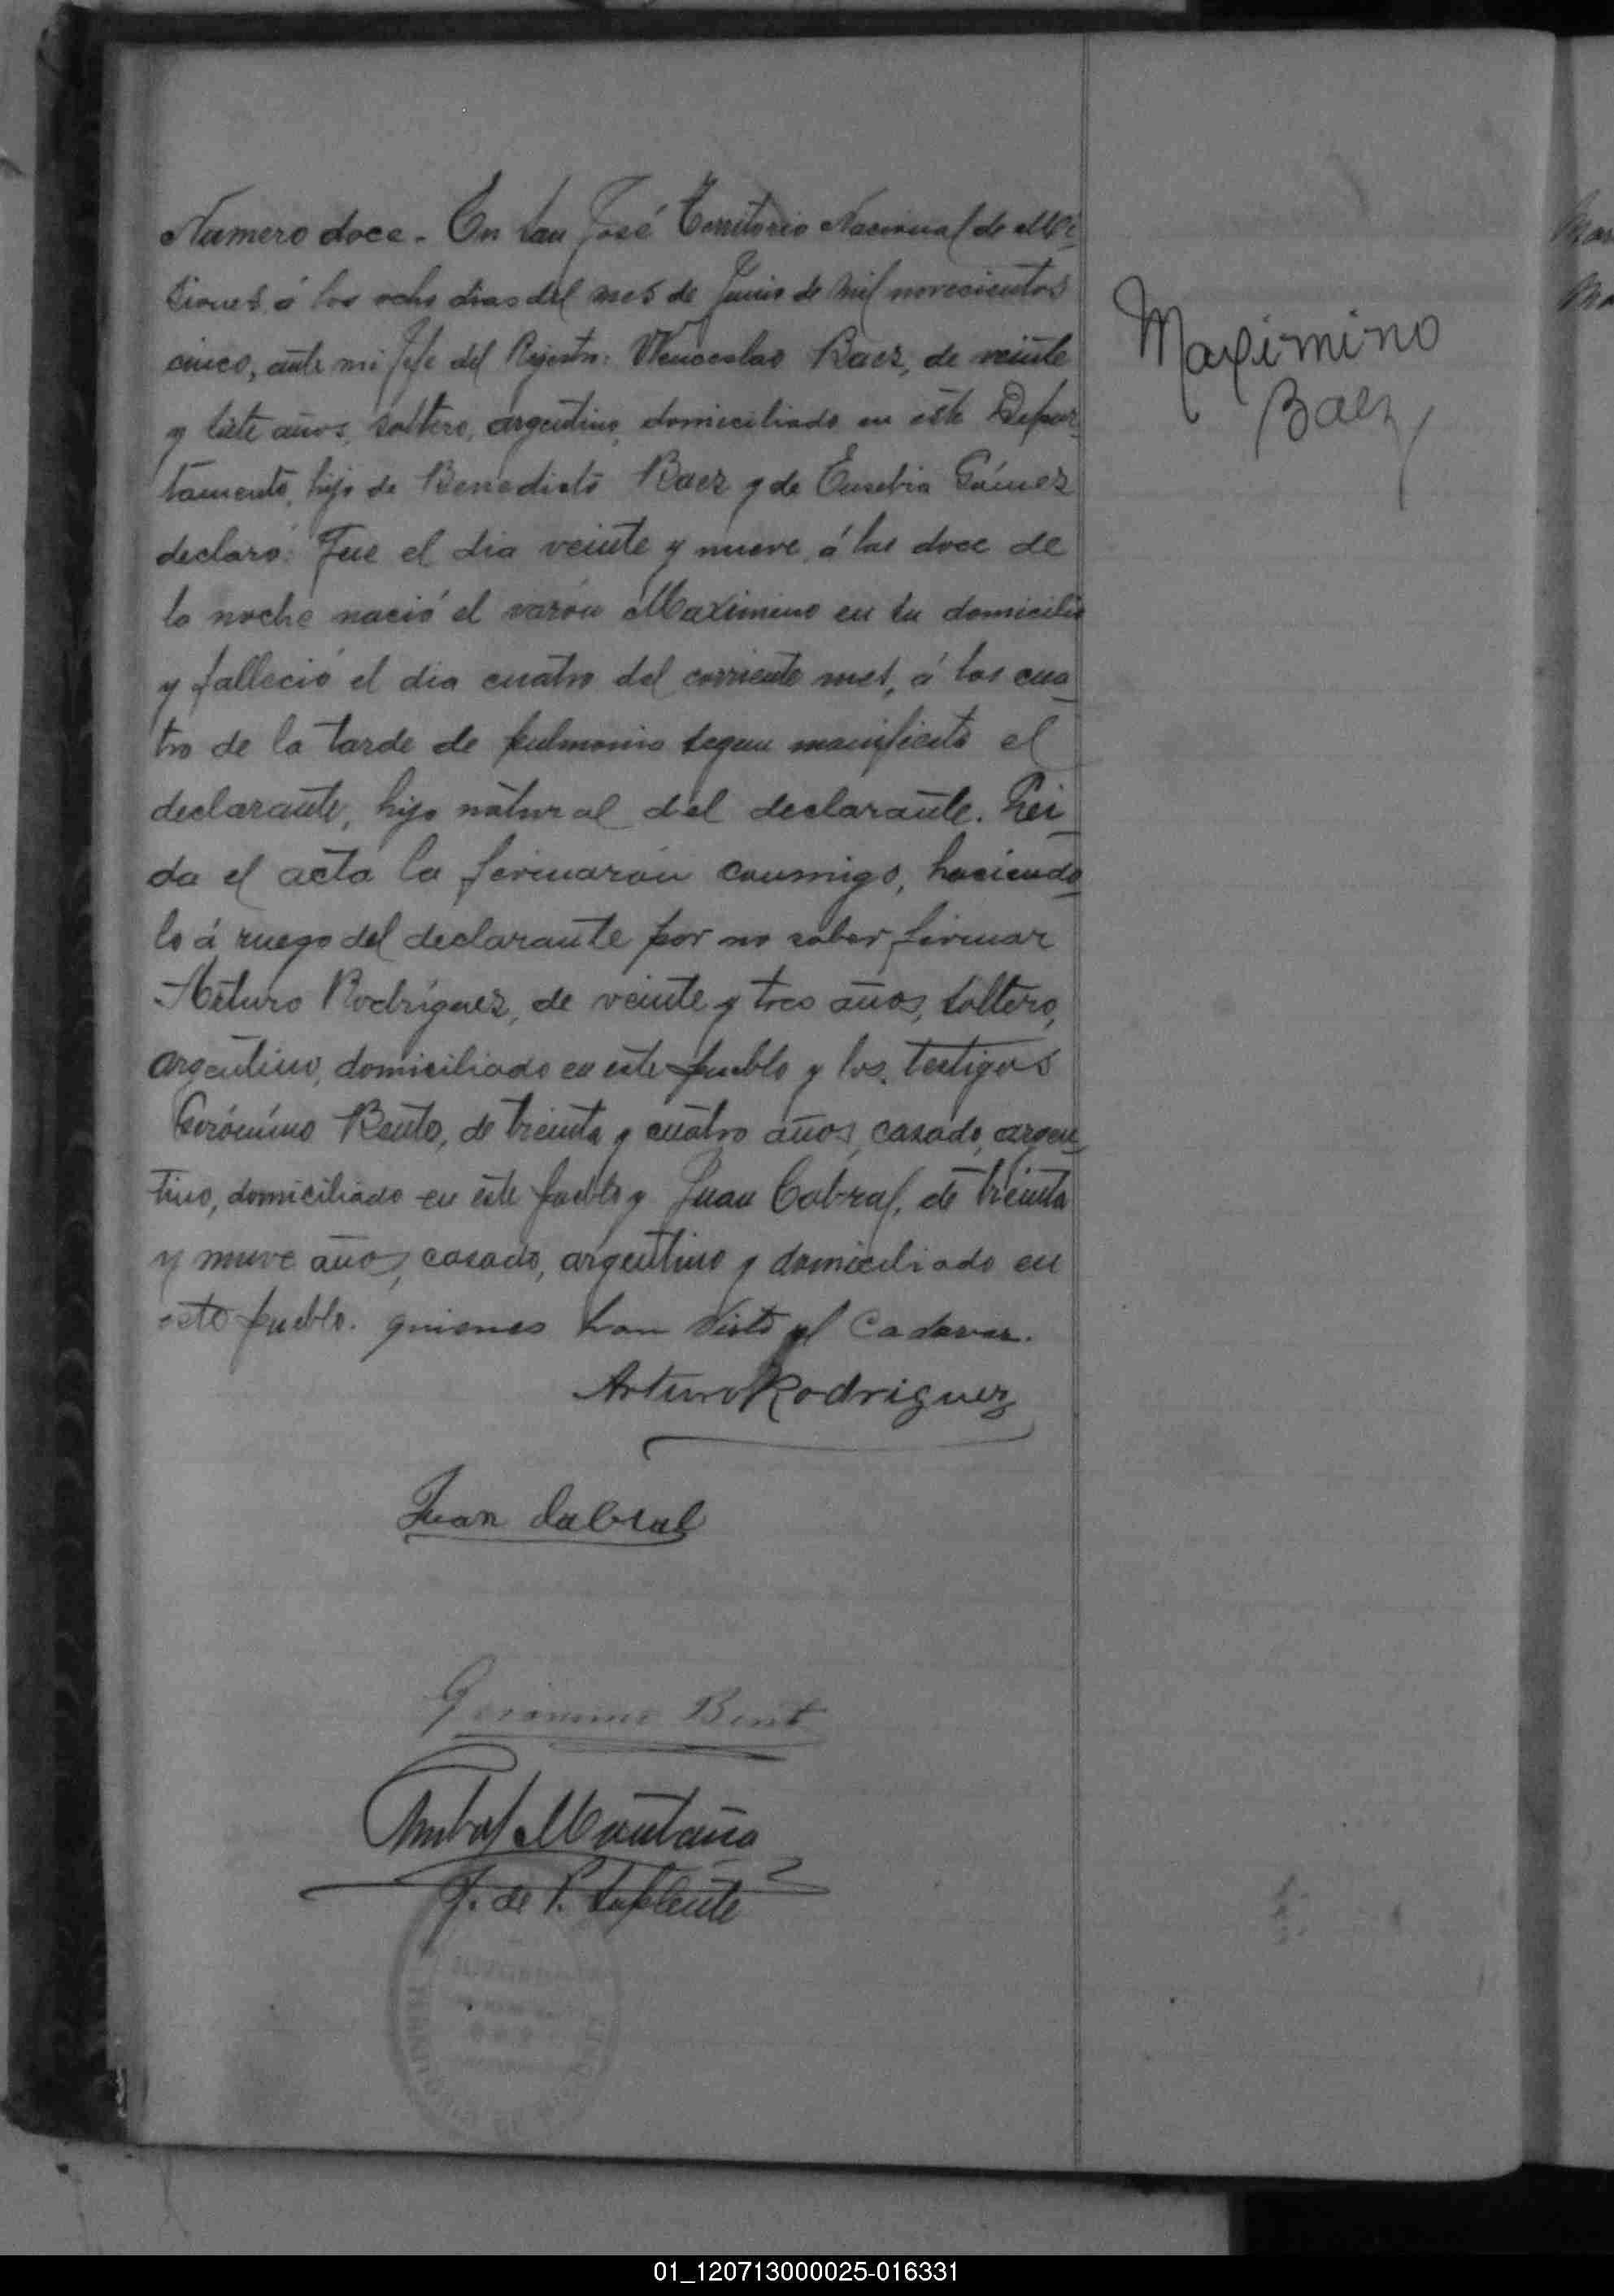 Numero doce. En San José Territorio Nacional de Mi-
siones á los ocho dias del mes de Junio de mil novecientos
cinco, ante mi Jefe del Rejistro: Wenceslao Baez, de veinte
y siete años, soltero, argentino, domiciliado en este Depar-
tamento, hijo de Benedicto Baez y de Eusebia Gómez
declaró: Fue el dia veinte y nueve, á las doce de
la noche nació el varón Maximino en su domicilio
y falleció el dia cuatro del corriente mes, á las cua-
tro de la tarde de pulmonia segun manifiesta el
declarante, hijo natural del declarante. Lei-
da el acta la firmaron conmigo, haciendo-
lo á ruego del declarante por no saber firmar
Arturo Rodríguez, de veinte y tres años, soltero,
argentino, domiciliado en este pueblo y los testigos
Gerónimo Bento, de treinta y cuatro años, casado, argen-
tino, domiciliado en este pueblo y Juan Cabral, de treinta
y nueve años, casado, argentino y domiciliado en
este pueblo. quienes han visto el Cadaver.
Arturo Rodriguez
Juan Cabral
Geronimo Bento
Anibal Montaña
J. de P. Suplente
Maximino
Baez
01_120713000025-016331